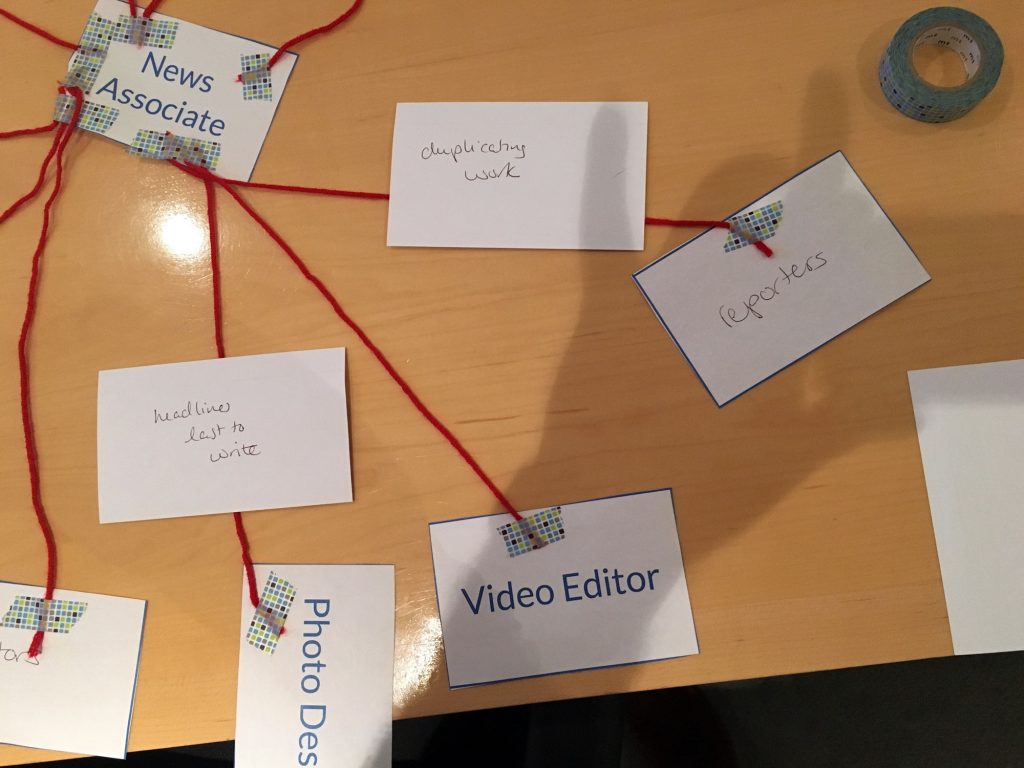 News
Associate
duplicating
work
reporters
headlines
last to
write
Video Editor
Photo Des
tors
mt